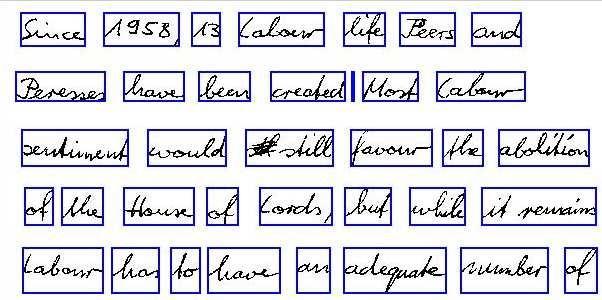 Since 1958, 13 Labour life Peers and
Peresses have been created Most Labour
sentiment would still favour the abolition
of the House of Lords, but while it remains
Labour has to have an adequate number of